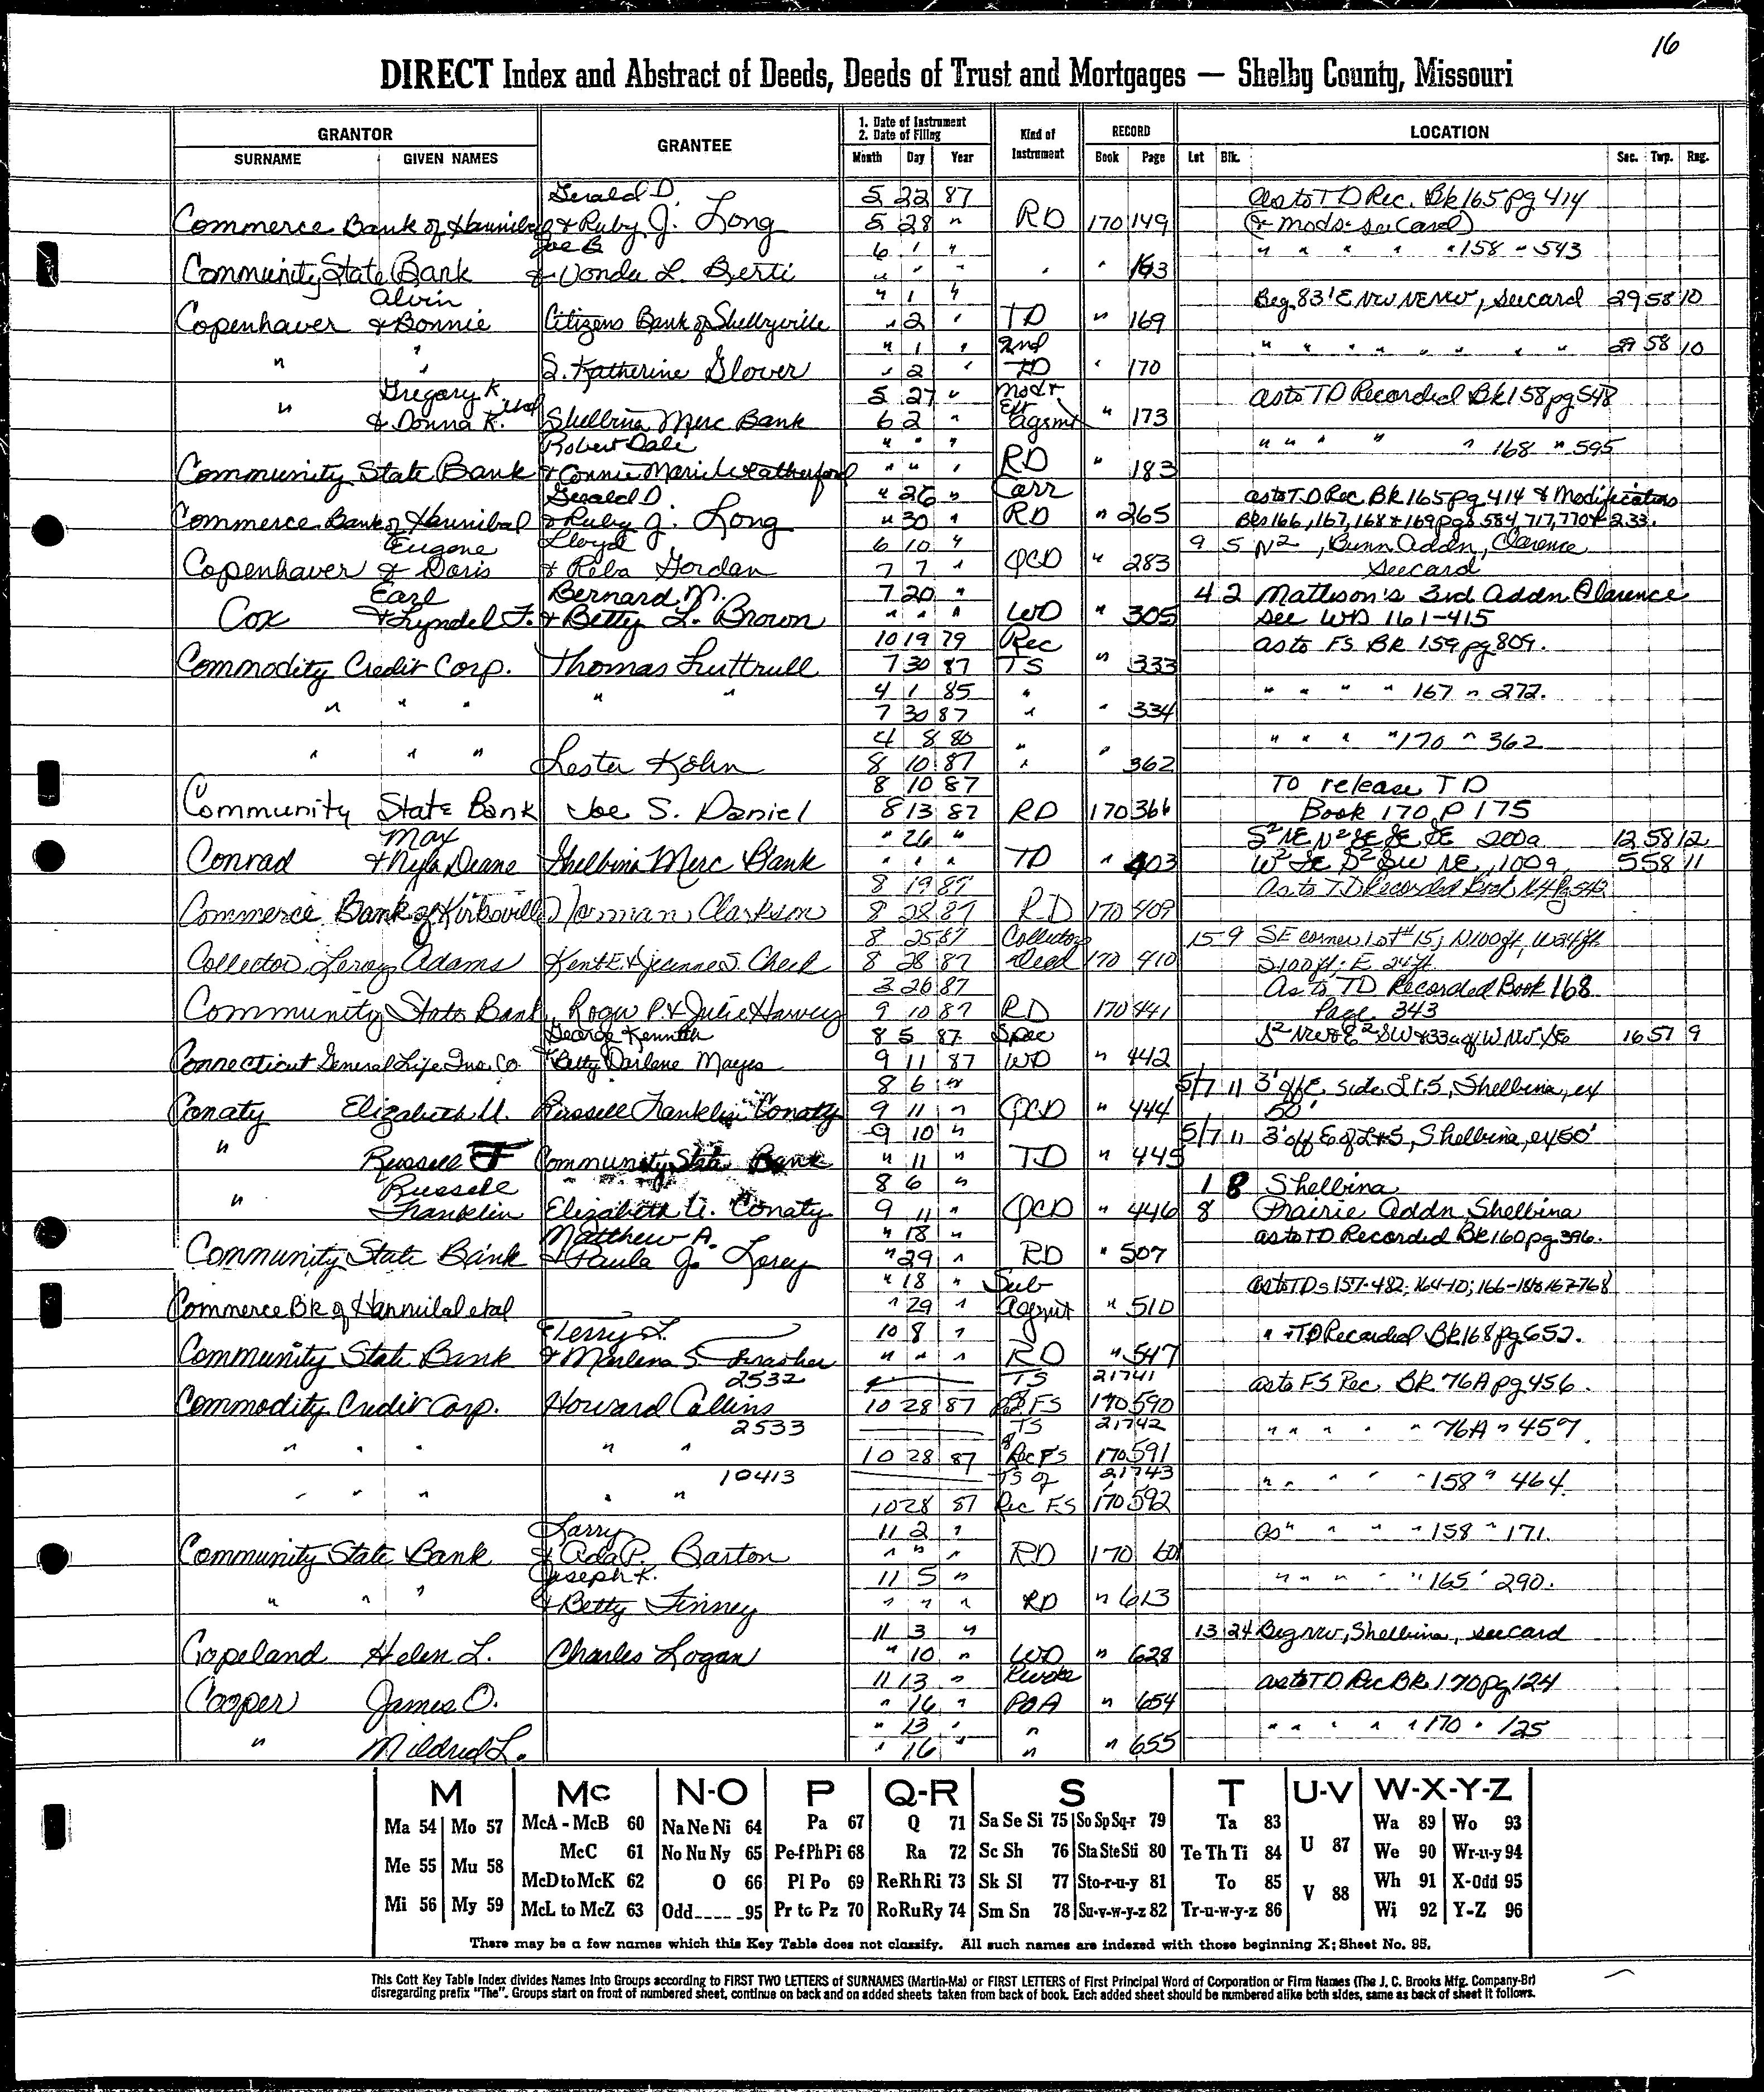 16
DIRECT Index and Abstract of Deeds, Deeds of Trust and Mortgages — Shelby County, Missouri
GRANTOR GRANTEE 1. Date of Instrument 2. Date of Filing Kind of Instrument RECORD LOCATION
SURNAME GIVEN NAMES Month Day Year Book Page Lot Blk. Sec. Twp. Rng.
Gerald D. 5 22 87 as to TD Rec. Bk 165 pg 414
Commerce Bank of Hannibal & Ruby J. Long 5 28 " RD 170 149 (& mods. see Card)
Joe B. 6 1 " " " " " " 158 " 543
Community State Bank & Vonda L. Berti " " " " " 163
Alvin " 1 " Beg. 83' E NW NE NW, see card 29 58 10
Copenhaver & Bonnie Citizens Bank of Shelbyville " 2 " TD " 169
" 1 " 2nd " " " " " " " " 29 58 10
" " S. Katherine Glover " 2 " TD " 170
Gregory K. 5 27 " Mod & as to TD Recorded Bk 158 pg 548
" & Donna K. Shelbina Merc Bank 6 2 " Ext Agsmt " 173
Robert Dale " " " " " " " " 168 " 595
Community State Bank & Connie Marie Weatherford " " " RD " 183
Gerald D. " 26 " Corr as to TD Rec. Bk 165 pg 414 & Modifications
Commerce Bank of Hannibal & Ruby J. Long " 30 " RD " 265 Bks 166, 167, 168 & 169 pgs 584, 717, 770 & 233.
Eugene Lloyd 6 10 " 9 5 N2, Bunn Addn, Clarence
Copenhaver & Doris & Reba Gordan 7 7 " QCD " 283 see card
Earl Bernard M. 7 20 " 4 2 Mattison's 3rd Addn Clarence
Cox & Lyndel F. & Betty L. Brown " " " WD " 305 see WD 161-415
10 19 79 Rec as to FS Bk 159 pg 809.
Commodity Credit Corp. Thomas Luttrull 7 30 87 TS " 333
4 1 85 " " " " " 167 " 272.
" " " " " 7 30 87 " " 334
4 8 80 " " " " " 170 " 362
" " " Lester Kohn 8 10 87 " " 362
8 10 87 To release TD
Community State Bank Joe S. Daniel 8 13 87 RD 170 366 Book 170 P 175
Max " 26 " S2 NE N2 SE SE SE 200a 12 58 12
Conrad & Nyla Deane Shelbina Merc Bank " " " TD " 403 W2 SE S2 SW NE, 100a 5 58 11
8 19 87 As to T D Recorded Book
Commerce Bank of Kirksville Norman Clarkson 8 28 87 RD 170 409
8 25 87 Collectors 15 9 SE corner Lot #15; N100ft, W24ft
Collector Leroy Adams Kent E. & Jeanne S. Cheek 8 28 87 Deed 170 410 S100ft; E 24ft.
3 26 87 As to TD Recorded Book 168
Community State Bank Roger P. & Julie Harvey 9 10 87 RD 170 441 Page 343
George Kenneth 8 5 87 Spec S2 NW & E2 SW & 33a of W NW SE 16 57 9
Connecticut General Life Ins. Co. & Betty Darlene Mayes 9 11 87 WD " 442
8 6 " 5/7 11 3' off E. side Lt 5, Shelbina, ex
Conaty Elizabeth U. Russell Franklin Conaty 9 11 " QCD " 444 50'
9 10 " 5/7 11 3' off E of Lt 5, Shelbina, ex 50'
" Russell F Community State Bank " 11 " TD " 445
Russell 8 6 " 1 8 Shelbina
" Franklin Elizabeth U. Conaty 9 11 " QCD " 446 8 Prairie Addn Shelbina
Matthew A. " 18 " as to TD Recorded Bk 160 pg 396.
Community State Bank & Paula J. Lorey " 29 " RD " 507
" 18 " Sub as to TDs 157-482; 164-10; 166-188 167-768
Commerce Bk of Hannibal etal " 29 " Agsmt " 510
Terry L. 10 8 " " TD Recorded Bk 168 pg 652.
Community State Bank & Marlena S. Thrasher " " " RD " 547
2532 TS 21741 as to FS Rec. Bk 76A pg 456.
Commodity Credit Corp. Howard Collins 10 28 87 FS 170 590
2533 TS 21742 " " " " " 76A " 457
" " " " " 10 28 87 Rec FS 170 591
10413 TS of 21743 " " " " " 158 " 464
" " " " " 10 28 87 Rec FS 170 592
Larry 11 2 " as " " " " 158 " 171.
Community State Bank & Ada P. Barton " " " RD 170 601
Joseph K. 11 5 " " " " " " 165 " 290.
" " " & Betty Finney " " " RD " 613
11 3 " 13 24 Beg NW, Shelbina, see card
Copeland Helen L. Charles Logan " 10 " WD " 628
11 13 " Revoke as to TD Rec Bk 170 pg 124
Cooper James O. " 16 " POA " 654
" 13 " " " " " " 170 " 125
" Mildred L. " 16 " " " 655
M Mc N-O P Q-R S T U-V W-X-Y-Z
Ma 54 Mo 57 McA - McB 60 Na Ne Ni 64 Pa 67 Q 71 Sa Se Si 75 So Sp Sq-r 79 Ta 83 Wa 89 Wo 93
McC 61 No Nu Ny 65 Pe-f Ph Pi 68 Ra 72 Sc Sh 76 Sta Ste Sti 80 Te Th Ti 84 U 87 We 90 Wr-u-y 94
Me 55 Mu 58 McD to McK 62 O 66 Pl Po 69 Re Rh Ri 73 Sk Sl 77 Sto-r-u-y 81 To 85 Wh 91 X-Odd 95
Mi 56 My 59 McL to McZ 63 Odd_____95 Pr to Pz 70 Ro Ru Ry 74 Sm Sn 78 Su-v-w-y-z 82 Tr-u-w-y-z 86 V 88 Wi 92 Y-Z 96
There may be a few names which this Key Table does not classify. All such names are indexed with those beginning X; Sheet No. 95.
This Cott Key Table Index divides Names Into Groups according to FIRST TWO LETTERS of SURNAMES (Martin-Ma) or FIRST LETTERS of First Principal Word of Corporation or Firm Names (The J. C. Brooks Mfg. Company-Br)
disregarding prefix "The". Groups start on front of numbered sheet, continue on back and on added sheets taken from back of book. Each added sheet should be numbered alike both sides, same as back of sheet it follows.